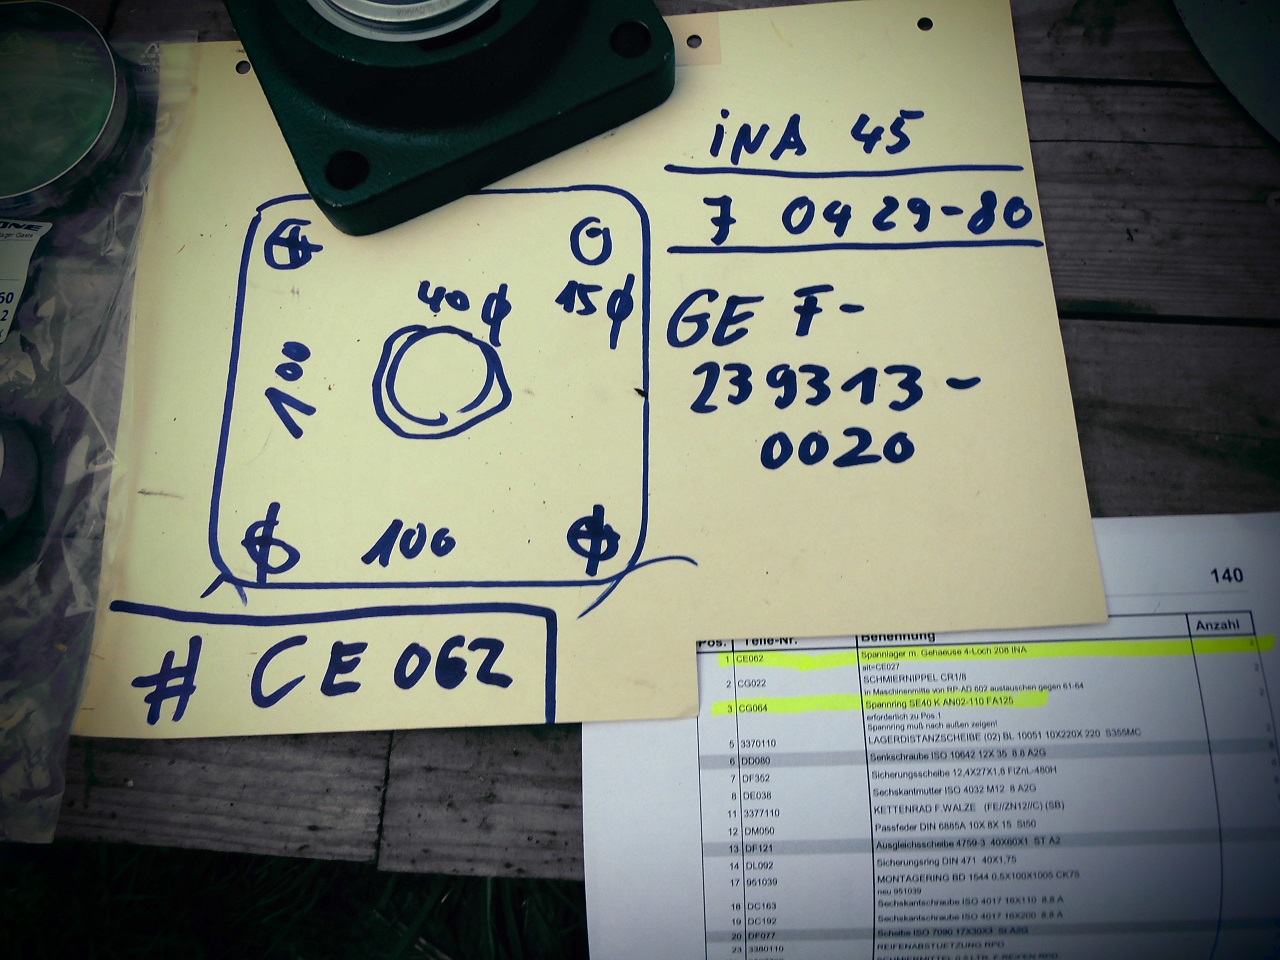 iNA 45
7 0429-80
GE F-
239313-
0020
40 φ
15 φ
100
100
# CE 062
60
2
140
Pos. Teile-Nr. Benennung Anzahl
1 CE062 Spannlager m. Gehaeuse 4-Loch 208 INA
alt=CE027
2 CG022 SCHMIERNIPPEL CR1/8
in Maschinenmitte von RP-AD 602 austauschen gegen 61-64
3 CG064 Spannring SE40 K AN02-110 FA125
erforderlich zu Pos.1
Spannring muß nach außen zeigen!
5 3370110 LAGERDISTANZSCHEIBE (02) BL 10051 10X220X 220 S355MC
6 DD080 Senkschraube ISO 10642 12X 35 8.8 A2G
7 DF352 Sicherungsscheibe 12,4X27X1,8 FlZnL-480H
8 DE038 Sechskantmutter ISO 4032 M12 8 A2G
11 3377110 KETTENRAD F.WALZE (FE//ZN12//C) (SB)
12 DM050 Passfeder DIN 6885A 10X 8X 15 St50
13 DF121 Ausgleichsscheibe 4759-3 40X60X1 ST A2
14 DL092 Sicherungsring DIN 471 40X1,75
17 951039 MONTAGERING BD 1544 0,5X100X1005 CK75
neu 951039
18 DC163 Sechskantschraube ISO 4017 16X110 8.8 A
19 DC192 Sechskantschraube ISO 4017 16X200 8.8 A
20 DF077 Scheibe ISO 7090 17X30X3 St A2G
23 3380110 REIFENABSTUETZUNG RPD